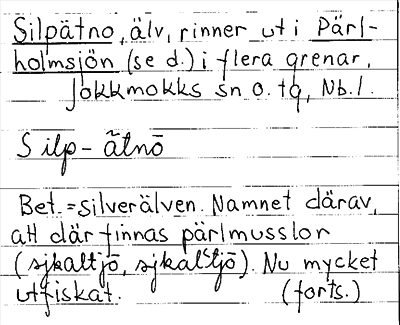 Silpätno, älv, rinner ut i Pärl-
holmsjön (se d.) i flera grenar,
Jokkmokks sn o. tg, Nb.l.
Silp-ātnō
Bet. = silverälven. Namnet därav,
att där finnas pärlmusslor
(sjkaltjō, sjkal'tjō). Nu mycket
utfiskat. (forts.)